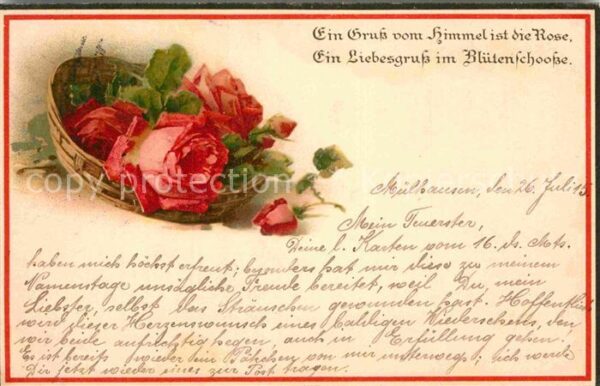 Ein Gruß vom Himmel ist die Rose,
Ein Liebesgruß im Blütenschooße.
copy protection
Mülhausen, den 26. Juli 15.
Mein Teuerster,
Deine l. Karten vom 16. ds. Mts.
haben mich höchst erfreut; besonders hat mir diese zu meinem
Namenstage unsägliche Freude bereitet, weil Du, mein
Liebster, selbst das Sträuschen gewunden hast. Hoffentlich
wird dieser Herzenswunsch eines baldigen Wiedersehens, den
wir beide aufrichtig hegen, auch in Erfüllung gehen.
Es ist bereits wieder ein Päckchen von mir unterwegs; ich werde
Dir jetzt wieder eines zur Post tragen.